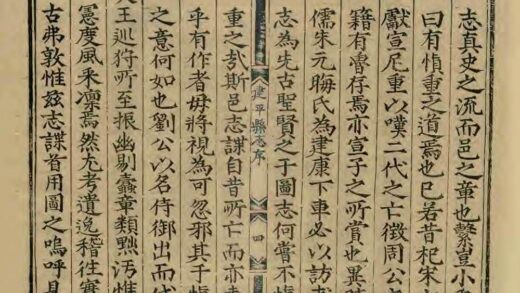 志真史之流而邑之章也繫豈小
曰有慎重之道焉也巳若昔杞宋
獻宣尼重以嘆二代之亡徵周公
籍有魯存焉亦宣子之所賞也異
儒朱元晦氏為建康下車必以訪
志為先古聖賢之于圖志何嘗不
建平縣志序
四
重之哉斯邑志諜自昔所亡而亦
乎有作者毋將視為可忽邪其于
之意何如也劉公以名侍御出而
王巡狩所至振幽剔蠹章類黜污惟
憲度風采凜焉然尤考遺逸稽徃
古弗敦惟茲志諜首用圖之嗚呼